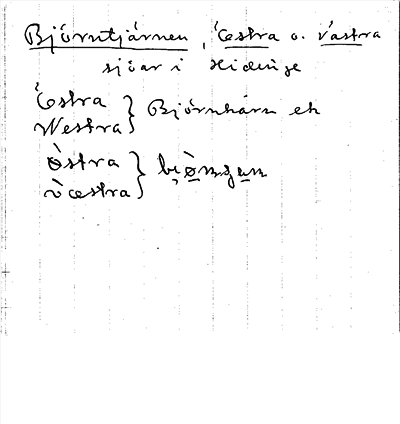 Björntjärnen, Östra o. Västra
sjöar i Hidinge
Östra
Westra } Björnkärn ek
östra
västra } bjö̀ngan